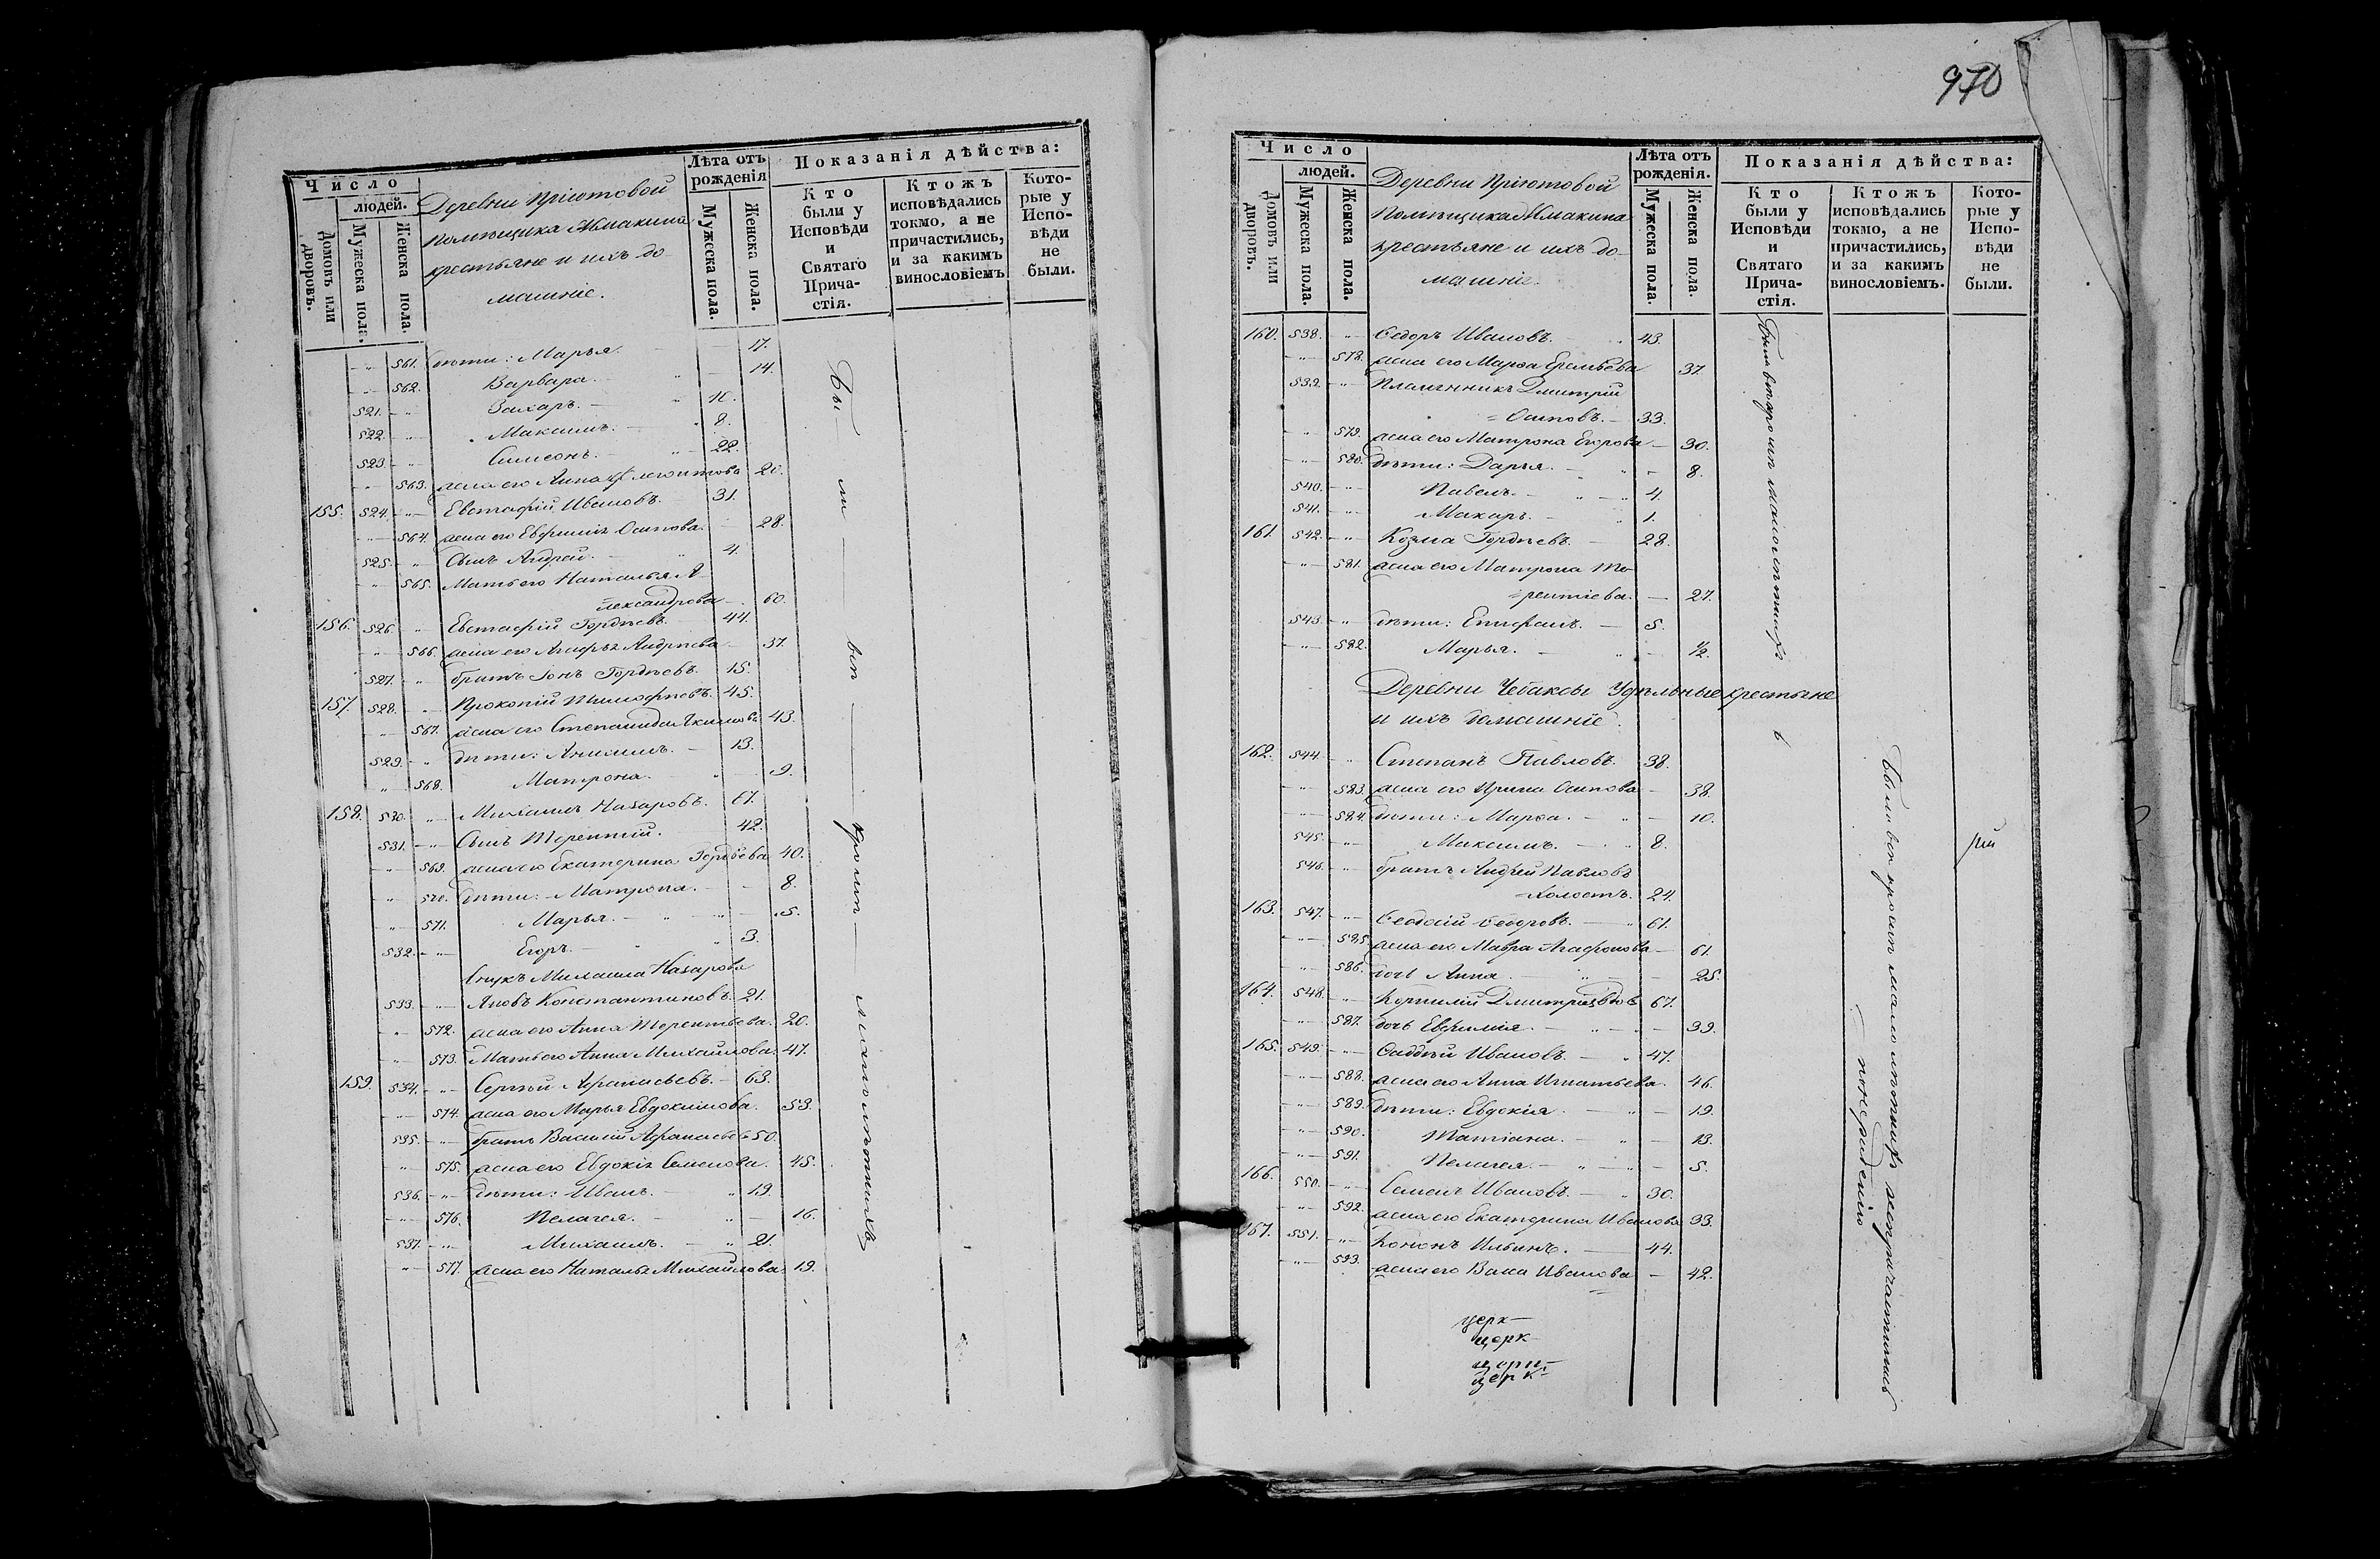 Число
людей.
Домовъ или дворовъ.
Мужеска пола.
Женска пола.
Деревни Пріютовой
помѣщика Ильмакина
крестьяне и ихъ до-
машніе.
Лѣта отъ рожденія
Мужеска пола.
Женска пола.
Показанія дѣйства:
Кто были у Исповѣди и Святаго Прича-стія.
Ктожъ исповѣдались токмо, а не причастились, и за какимъ винословіемъ
Кото-рые у Испо-вѣди не были.
561. дѣти: Марья. 17.
562. Варвара. 14.
521. Захаръ. 10.
522. Максимъ. 8.
523. Симеонъ. 22.
563. жена его Анна 20.
155. 524. Евстафій Ивановъ. 31.
564. жена его Евфимія Осипова. 28.
525. Сынъ Андрей. 4.
565. Мать его Наталья А-
лександрова 60.
156. 526. Евстафій Гордѣевъ 44.
566. жена его Агафья Андреева 37.
527. братъ Іонъ Гордѣевъ. 15.
157. 528. Прокопій Тимофѣевъ. 45.
567. жена его Степанида Якимова 43.
529. дѣти: Анисимъ. 13.
568. Матрона. 9.
158. 530. Михаилъ Назаровъ. 67.
531. Сынъ Терентій. 42.
569. жена его Екатерина Гордѣева 40.
570. дѣти: Матрона. 8.
571. Марья. 5.
532. Егоръ. 3.
Внукъ Михаила Назарова
533. Яковъ Константиновъ. 21.
572. жена его Анна Терентьева. 20.
573. Мать его Анна Михайлова. 47.
159. 534. Сергѣй Афанасьевъ. 63.
574. жена его Марья Евдокимова. 53.
535. братъ Василій Афанасьевъ 50.
575. жена его Евдокія Семенова. 45.
536. дѣти: Иванъ. 19.
576. Пелагея. 16.
537. Михаилъ. 21.
577. жена его Наталья Михайлова. 19.
Бы— ли — всѣ — кромѣ — малолѣтнихъ
970
Число
людей.
Домовъ или дворовъ.
Мужеска пола.
Женска пола.
Деревни Пріютовой
Помѣщика Ильмакина
крестьяне и ихъ до-
машніе.
Лѣта отъ рожденія.
Мужеска пола.
Женска пола.
Показанія дѣйства:
Кто были у Исповѣди и Святаго Прича-стія.
Ктожъ исповѣдались токмо, а не причастились, и за какимъ винословіемъ.
Кото-рые у Испо-вѣди не были.
160. 538. Ѳедоръ Ивановъ. 43.
578. жена его Марѳа Еремѣева 37.
539. Племянникъ Дмитрій
Осиповъ. 33.
579. жена его Матрона Егорова 30.
580. дѣти: Дарья. 8.
540. Павелъ. 4.
541. Макаръ. 1.
161. 542. Козма Гордѣевъ. 28.
581. жена его Матрона Те-
рентіева. 27.
543. дѣти: Епифанъ. 5.
582. Марья. ½.
Деревни Чебаксы Удѣльные крестьяне
и ихъ домашніе.
162. 544. Степанъ Павловъ. 38.
583. жена его Ирина Осипова 38.
584. дѣти: Марѳа. 10.
545. Максимъ. 8.
546. братъ Андрей Павловъ
холостъ. 24.
163. 547. Ѳеодосій Ѳедоровъ. 61.
585. жена его Мавра Агафонова 61.
586. дочь Анна 25.
164. 548. Корнилій Дмитріевъ вдовъ 67.
587. дочь Евфимія. 39.
165. 549. Ѳаддѣй Ивановъ. 47.
588. жена его Анна Игнатьева. 46.
589. дѣти: Евдокія. 19.
590. Татіана. 13.
591. Пелагея. 5.
166. 550. Семенъ Ивановъ. 30.
592. жена его Екатерина Иванова 33.
167. 551. Кононъ Ильинъ. 44.
593. жена его Васа Иванова 42.
Были всѣ кромѣ малолѣтнихъ
Были всѣ кромѣ малолѣтнихъ непричастились
по нерадѣнію
церк-
церк-
церк-
церк-